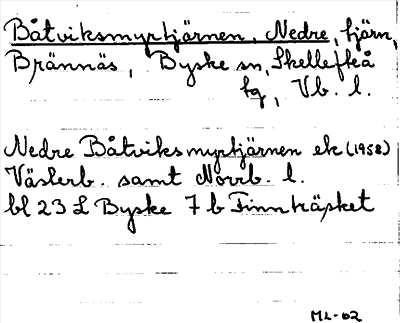 Båtviksmyrtjärnen, Nedre, tjärn,
Brännäs, Byske sn, Skellefteå
tg, Vb. l.
Nedre Båtviksmyrtjärnen ek (1958)
Västerb. samt Norrb. l.
bl 23 L Byske 7 b Finnträsket
ML-02